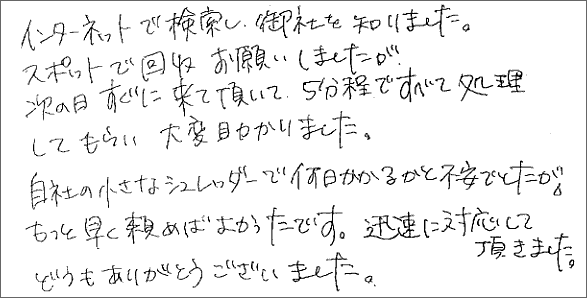 インターネットで検索し、御社を知りました。
スポットで回収お願いしましたが、
次の日すぐに来て頂いて、5分程ですべて処理
してもらい大変助かりました。
自社の小さなシュレッダーで何日かかるかと不安でしたが、
もっと早く頼めばよかったです。迅速に対応して
頂きました。
どうもありがとうございました。